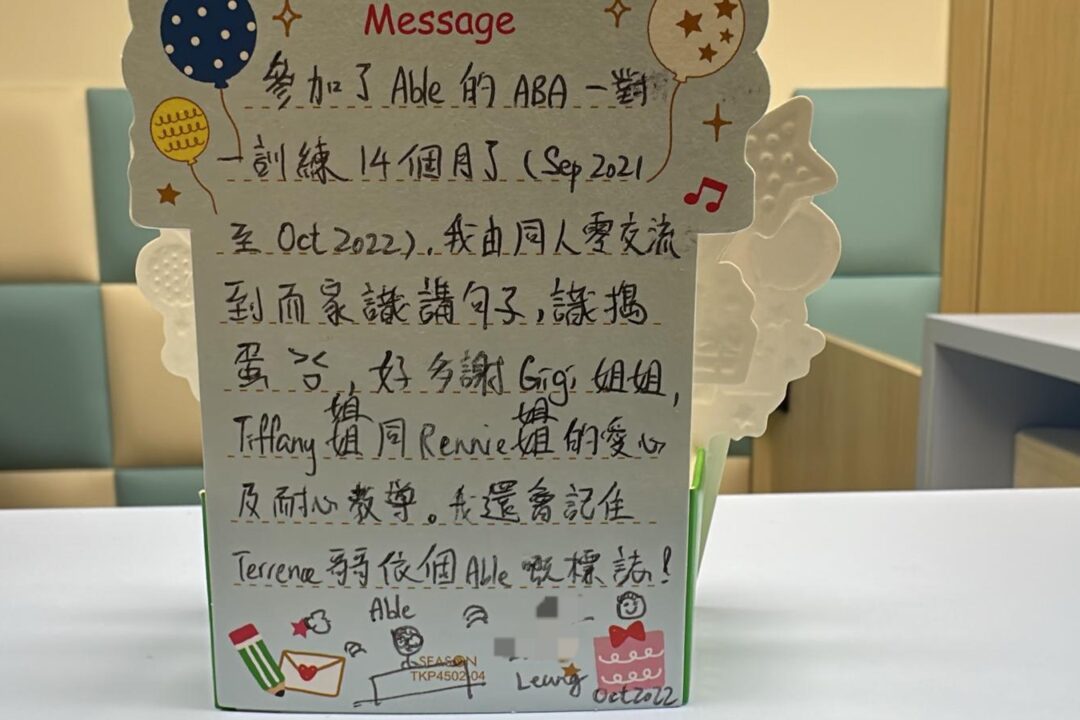 Message
參加了 Able 的 ABA 一對
一訓練 14個月了 (Sep 2021
至 Oct 2022), 我由同人零交流
到而家識講句子, 識搗
蛋, 好多謝 Gigi 姐姐,
Tiffany 姐姐同 Rennie 姐姐的愛心
及耐心教導。我還會記住
Terrence 哥哥依個 Able 嘅標誌!
Able
SEASON
TKP4502-04
Leung
Oct 2022